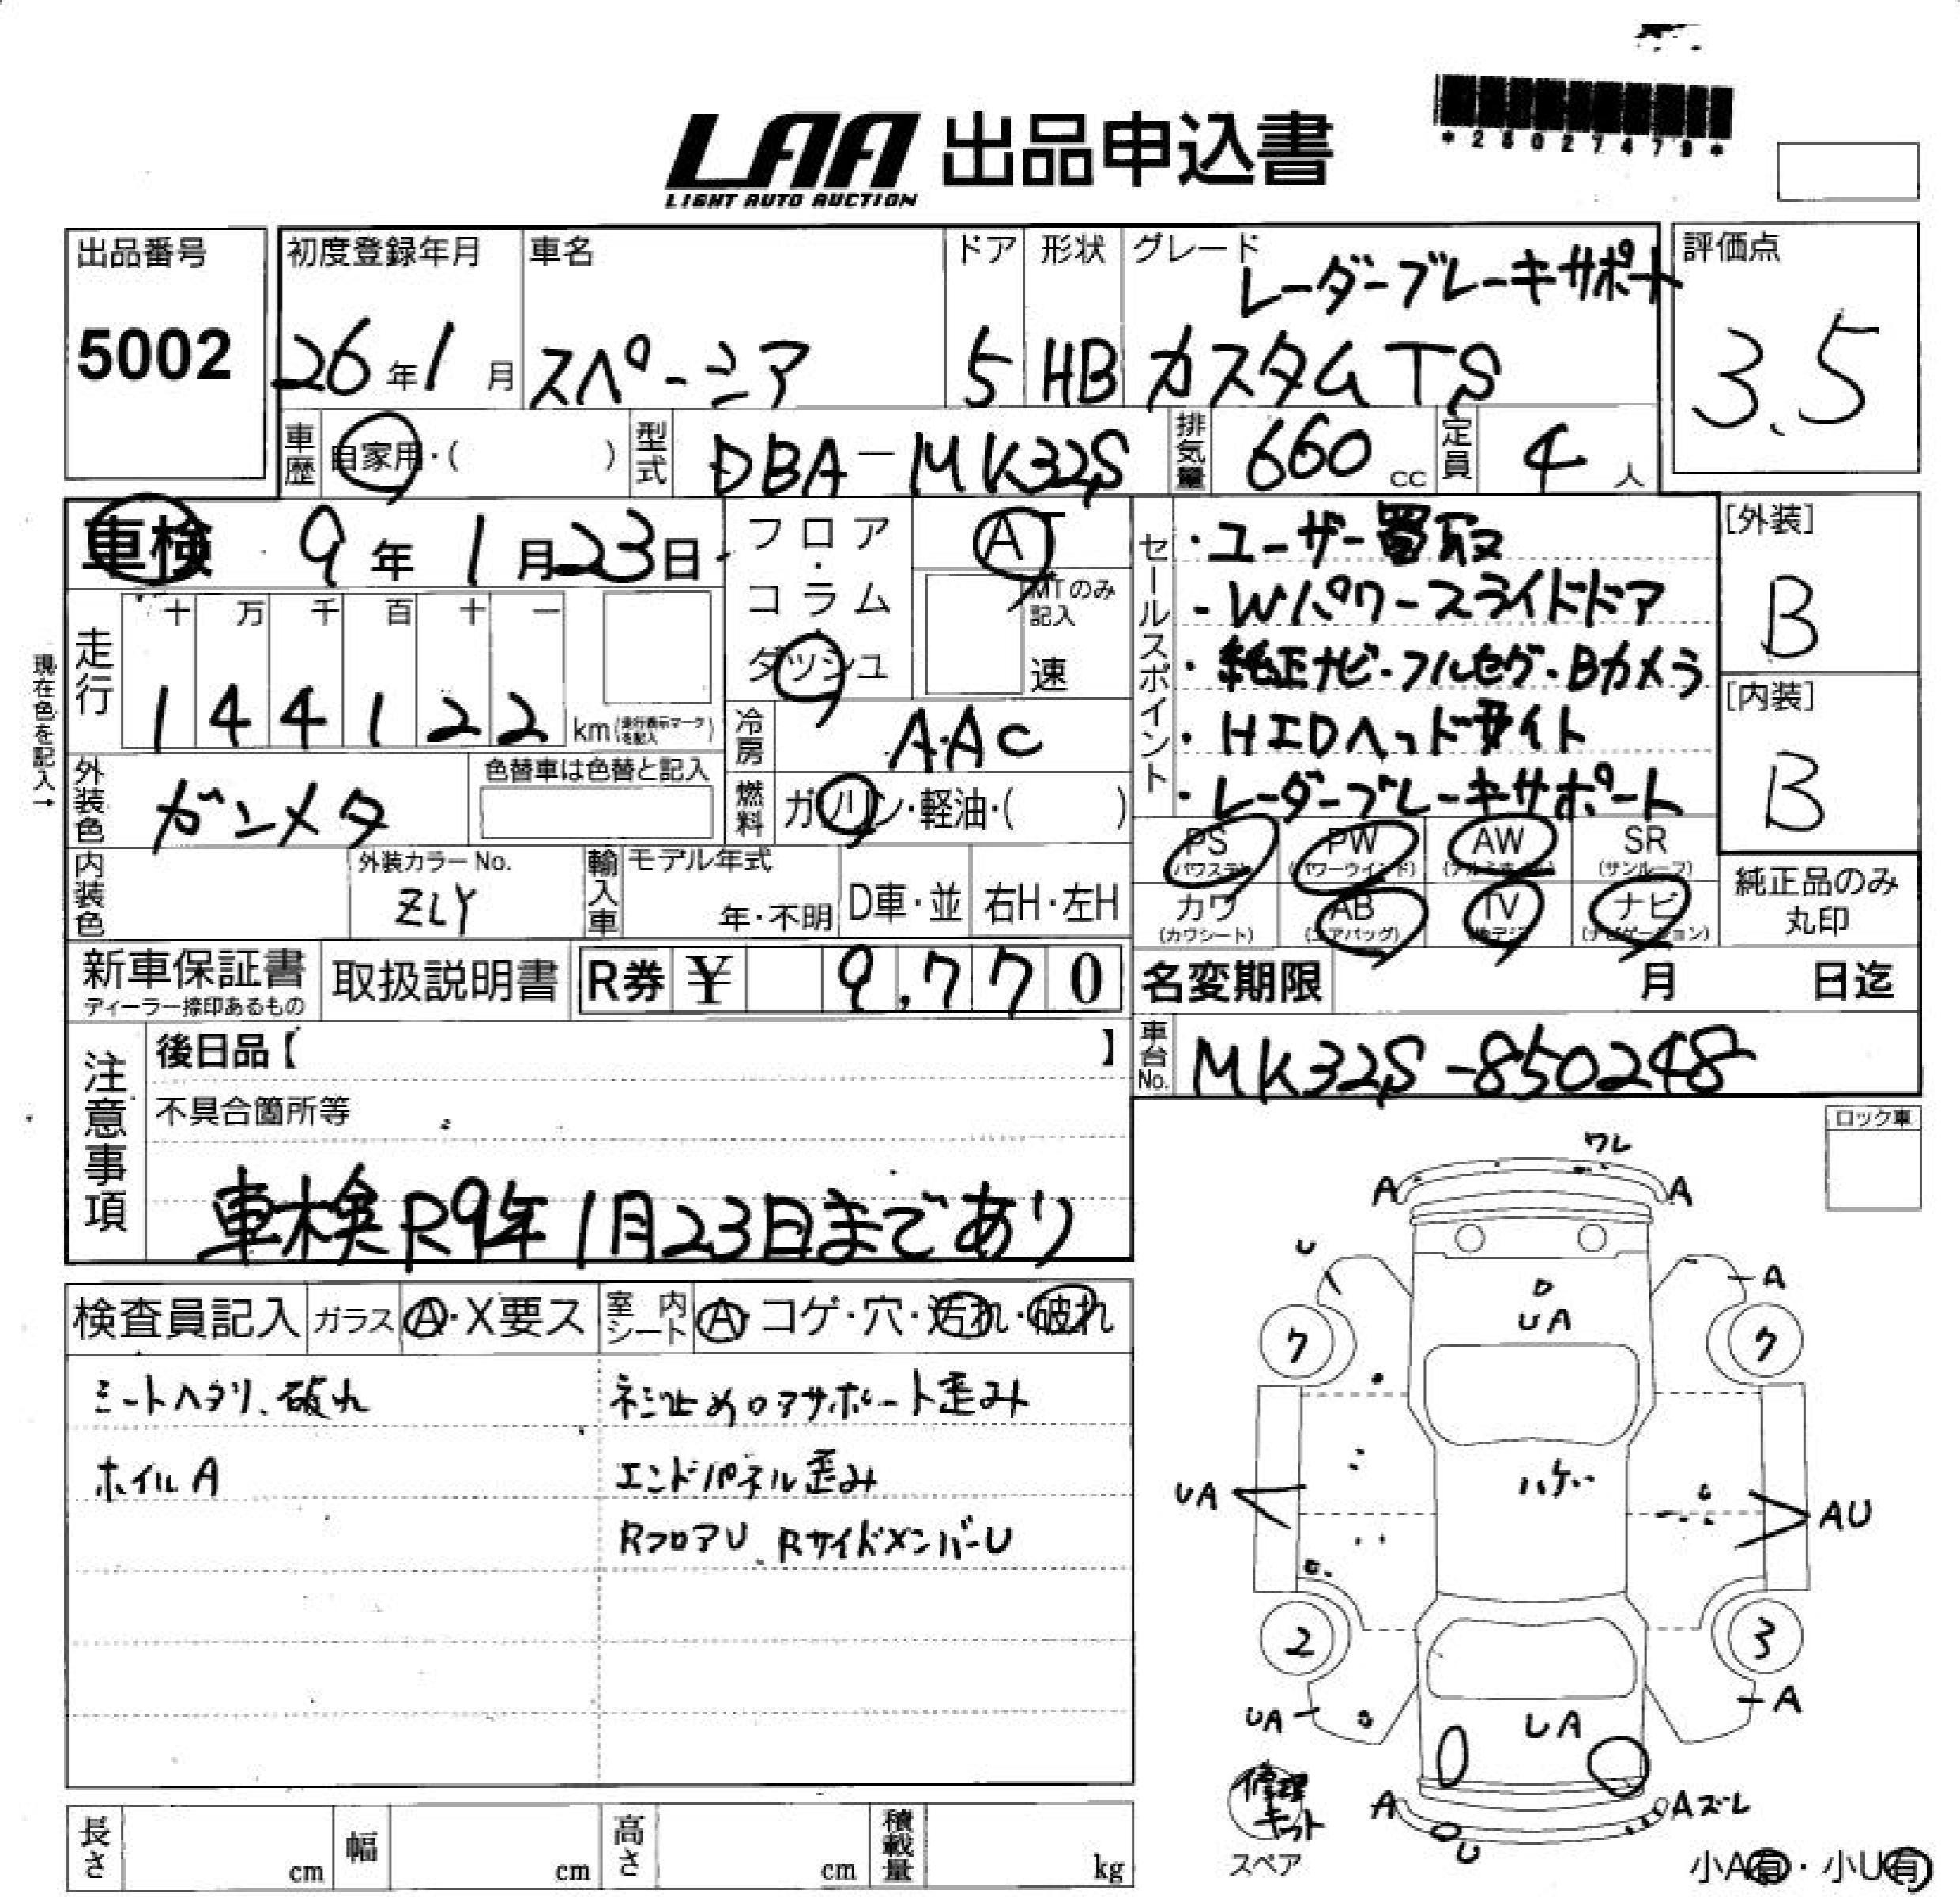 *28027479*
LAA 出品申込書
LIGHT AUTO AUCTION
出品番号
5002
初度登録年月
26年1月
車名
スペーシア
ドア
5
形状
HB
グレード
レーダーブレーキサポート
カスタムTS
評価点
3.5
車歴
自家用・( )
型式
DBA-MK32S
排気量
660 cc
定員
4 人
車検 9年1月23日
フロア・コラム・ダッシュ
AT
MTのみ記入
速
現在色を記入→
走行
十 万 千 百 十 一
1 4 4 1 2 2 km(走行表示マークを記入)
冷房
AAC
外装色
ガンメタ
色替車は色替と記入
燃料
ガソリン・軽油・( )
セールスポイント
・ユーザー買取
・Wパワースライドドア
・純正ナビ・フルセグ・Bカメラ
・HIDヘッドライト
・レーダーブレーキサポート
[外装]
B
[内装]
B
内装色
外装カラーNo.
ZLY
輸入車
モデル年式
年・不明
D車・並
右H・左H
PS (パワステ)
PW (パワーウインド)
AW (アルミホイル)
SR (サンルーフ)
カワ (カワシート)
AB (エアバッグ)
TV (地デジ)
ナビ (ナビゲーション)
純正品のみ丸印
新車保証書
ディーラー捺印あるもの
取扱説明書
R券 ¥ 9,770
名変期限 月 日迄
注意事項
後日品【 】
不具合箇所等
車検R9年1月23日まであり
車台No.
MK32S-850248
ロック車
検査員記入
ガラス
A・X要ス
室内シート
A・コゲ・穴・汚れ・破れ
シートヘタリ、破れ
ホイルA
ネジ止めロアサポート歪み
エンドパネル歪み
RフロアU、RサイドメンバーU
ワレ
A
A
U
A
UA
7
7
UA
ハゲ
AU
2
3
UA
A
UA
A
Aズレ
U
修理キット
スペア
小A有・小U有
長さ cm
幅 cm
高さ cm
積載量 kg